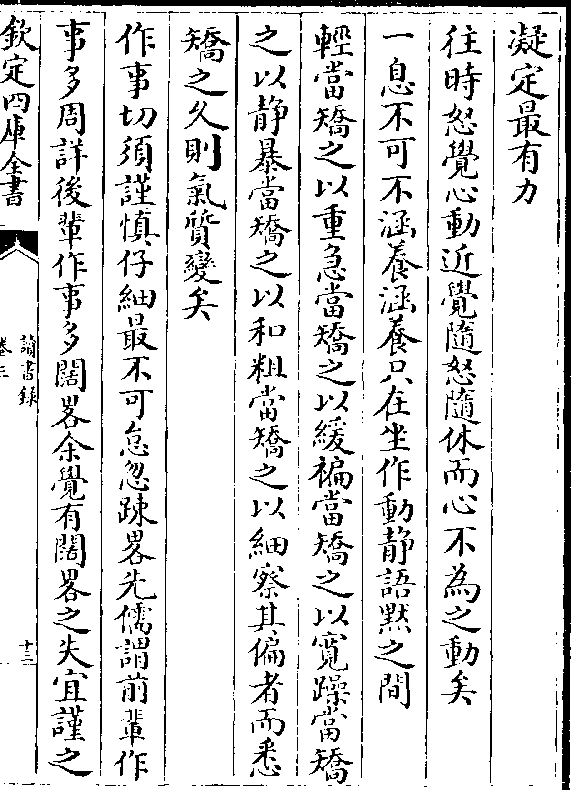 凝定最有力
往時怒覺心動近覺隨怒隨休而心不為之動矣
一息不可不涵養涵養只在坐作動静語黙之間
輕當矯之以重急當矯之以緩褊當矯之以寛躁當矯
之以静暴當矯之以和粗當矯之以細察其偏者而悉
矯之久則氣質變矣
作事切須謹慎仔細最不可怠忽踈畧先儒謂前輩作
事多周詳後輩作事多闊畧余覺有闊畧之失宜謹之
欽定四庫全書
讀書録
十三